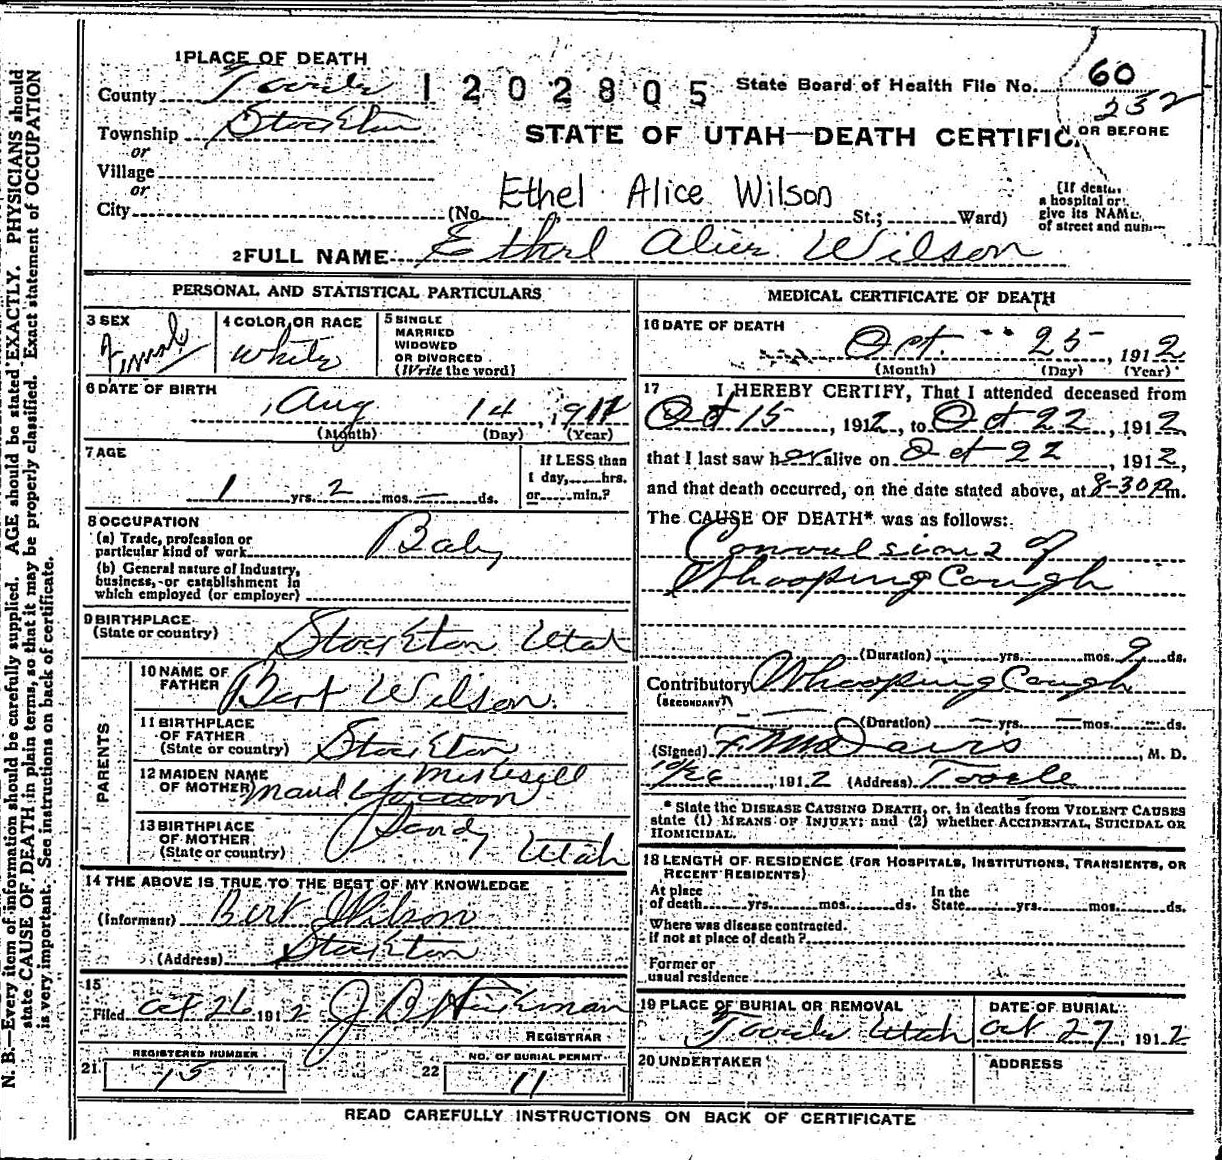 1 PLACE OF DEATH
County Tooele 1202805 State Board of Health File No. 60
232
Township Stockton STATE OF UTAH—DEATH CERTIFIC
N OR BEFORE
or
Village
or
City (No. St.; Ward)
Ethel Alice Wilson
(If death
a hospital or
give its NAME
of street and num
2 FULL NAME Ethel Alice Wilson
PERSONAL AND STATISTICAL PARTICULARS
3 SEX Female
4 COLOR OR RACE White
5 SINGLE
MARRIED
WIDOWED
OR DIVORCED
(Write the word)
6 DATE OF BIRTH
Aug 14, 1911
(Month) (Day) (Year)
7 AGE
1 yrs. 2 mos. — ds.
If LESS than
1 day, hrs.
or min.?
8 OCCUPATION
(a) Trade, profession or
particular kind of work Baby
(b) General nature of Industry,
business, or establishment in
which employed (or employer)
9 BIRTHPLACE
(State or country) Stockton Utah
PARENTS
10 NAME OF
FATHER Bert Wilson
11 BIRTHPLACE
OF FATHER
(State or country) Stockton
12 MAIDEN NAME
OF MOTHER Maud
13 BIRTHPLACE
OF MOTHER
(State or country) Sandy Utah
14 THE ABOVE IS TRUE TO THE BEST OF MY KNOWLEDGE
(Informant) Bert Wilson
(Address) Stockton
15
Filed Oct 26 1912 J B Hickman
REGISTRAR
REGISTERED NUMBER
21 15
NO. OF BURIAL PERMIT
22 11
MEDICAL CERTIFICATE OF DEATH
16 DATE OF DEATH
Oct. 25, 1912
(Month) (Day) (Year)
17 I HEREBY CERTIFY, That I attended deceased from
Oct 15, 1912, to Oct 22, 1912,
that I last saw her alive on Oct 22, 1912,
and that death occurred, on the date stated above, at 8-30 Pm.
The CAUSE OF DEATH* was as follows:
Convulsions of
Whooping Cough
(Duration) yrs. mos. 9 ds.
Contributory Whooping Cough
(SECONDARY)
(Duration) — yrs. — mos. — ds.
(Signed) Davis, M. D.
10/26, 1912 (Address) Tooele
* State the DISEASE CAUSING DEATH, or, in deaths from VIOLENT CAUSES
state (1) MEANS OF INJURY; and (2) whether ACCIDENTAL, SUICIDAL OR
HOMICIDAL.
18 LENGTH OF RESIDENCE (FOR HOSPITALS, INSTITUTIONS, TRANSIENTS, OR
RECENT RESIDENTS)
At place
of death yrs. mos. ds.
In the
State yrs. mos. ds.
Where was disease contracted.
if not at place of death?
Former or
usual residence
19 PLACE OF BURIAL OR REMOVAL
Tooele Utah
DATE OF BURIAL
Oct 27, 1912
20 UNDERTAKER
ADDRESS
READ CAREFULLY INSTRUCTIONS ON BACK OF CERTIFICATE
N. B.—Every item of information should be carefully supplied. AGE should be stated EXACTLY. PHYSICIANS should
state CAUSE OF DEATH in plain terms, so that it may be properly classified. Exact statement of OCCUPATION
is very important. See instructions on back of certificate.